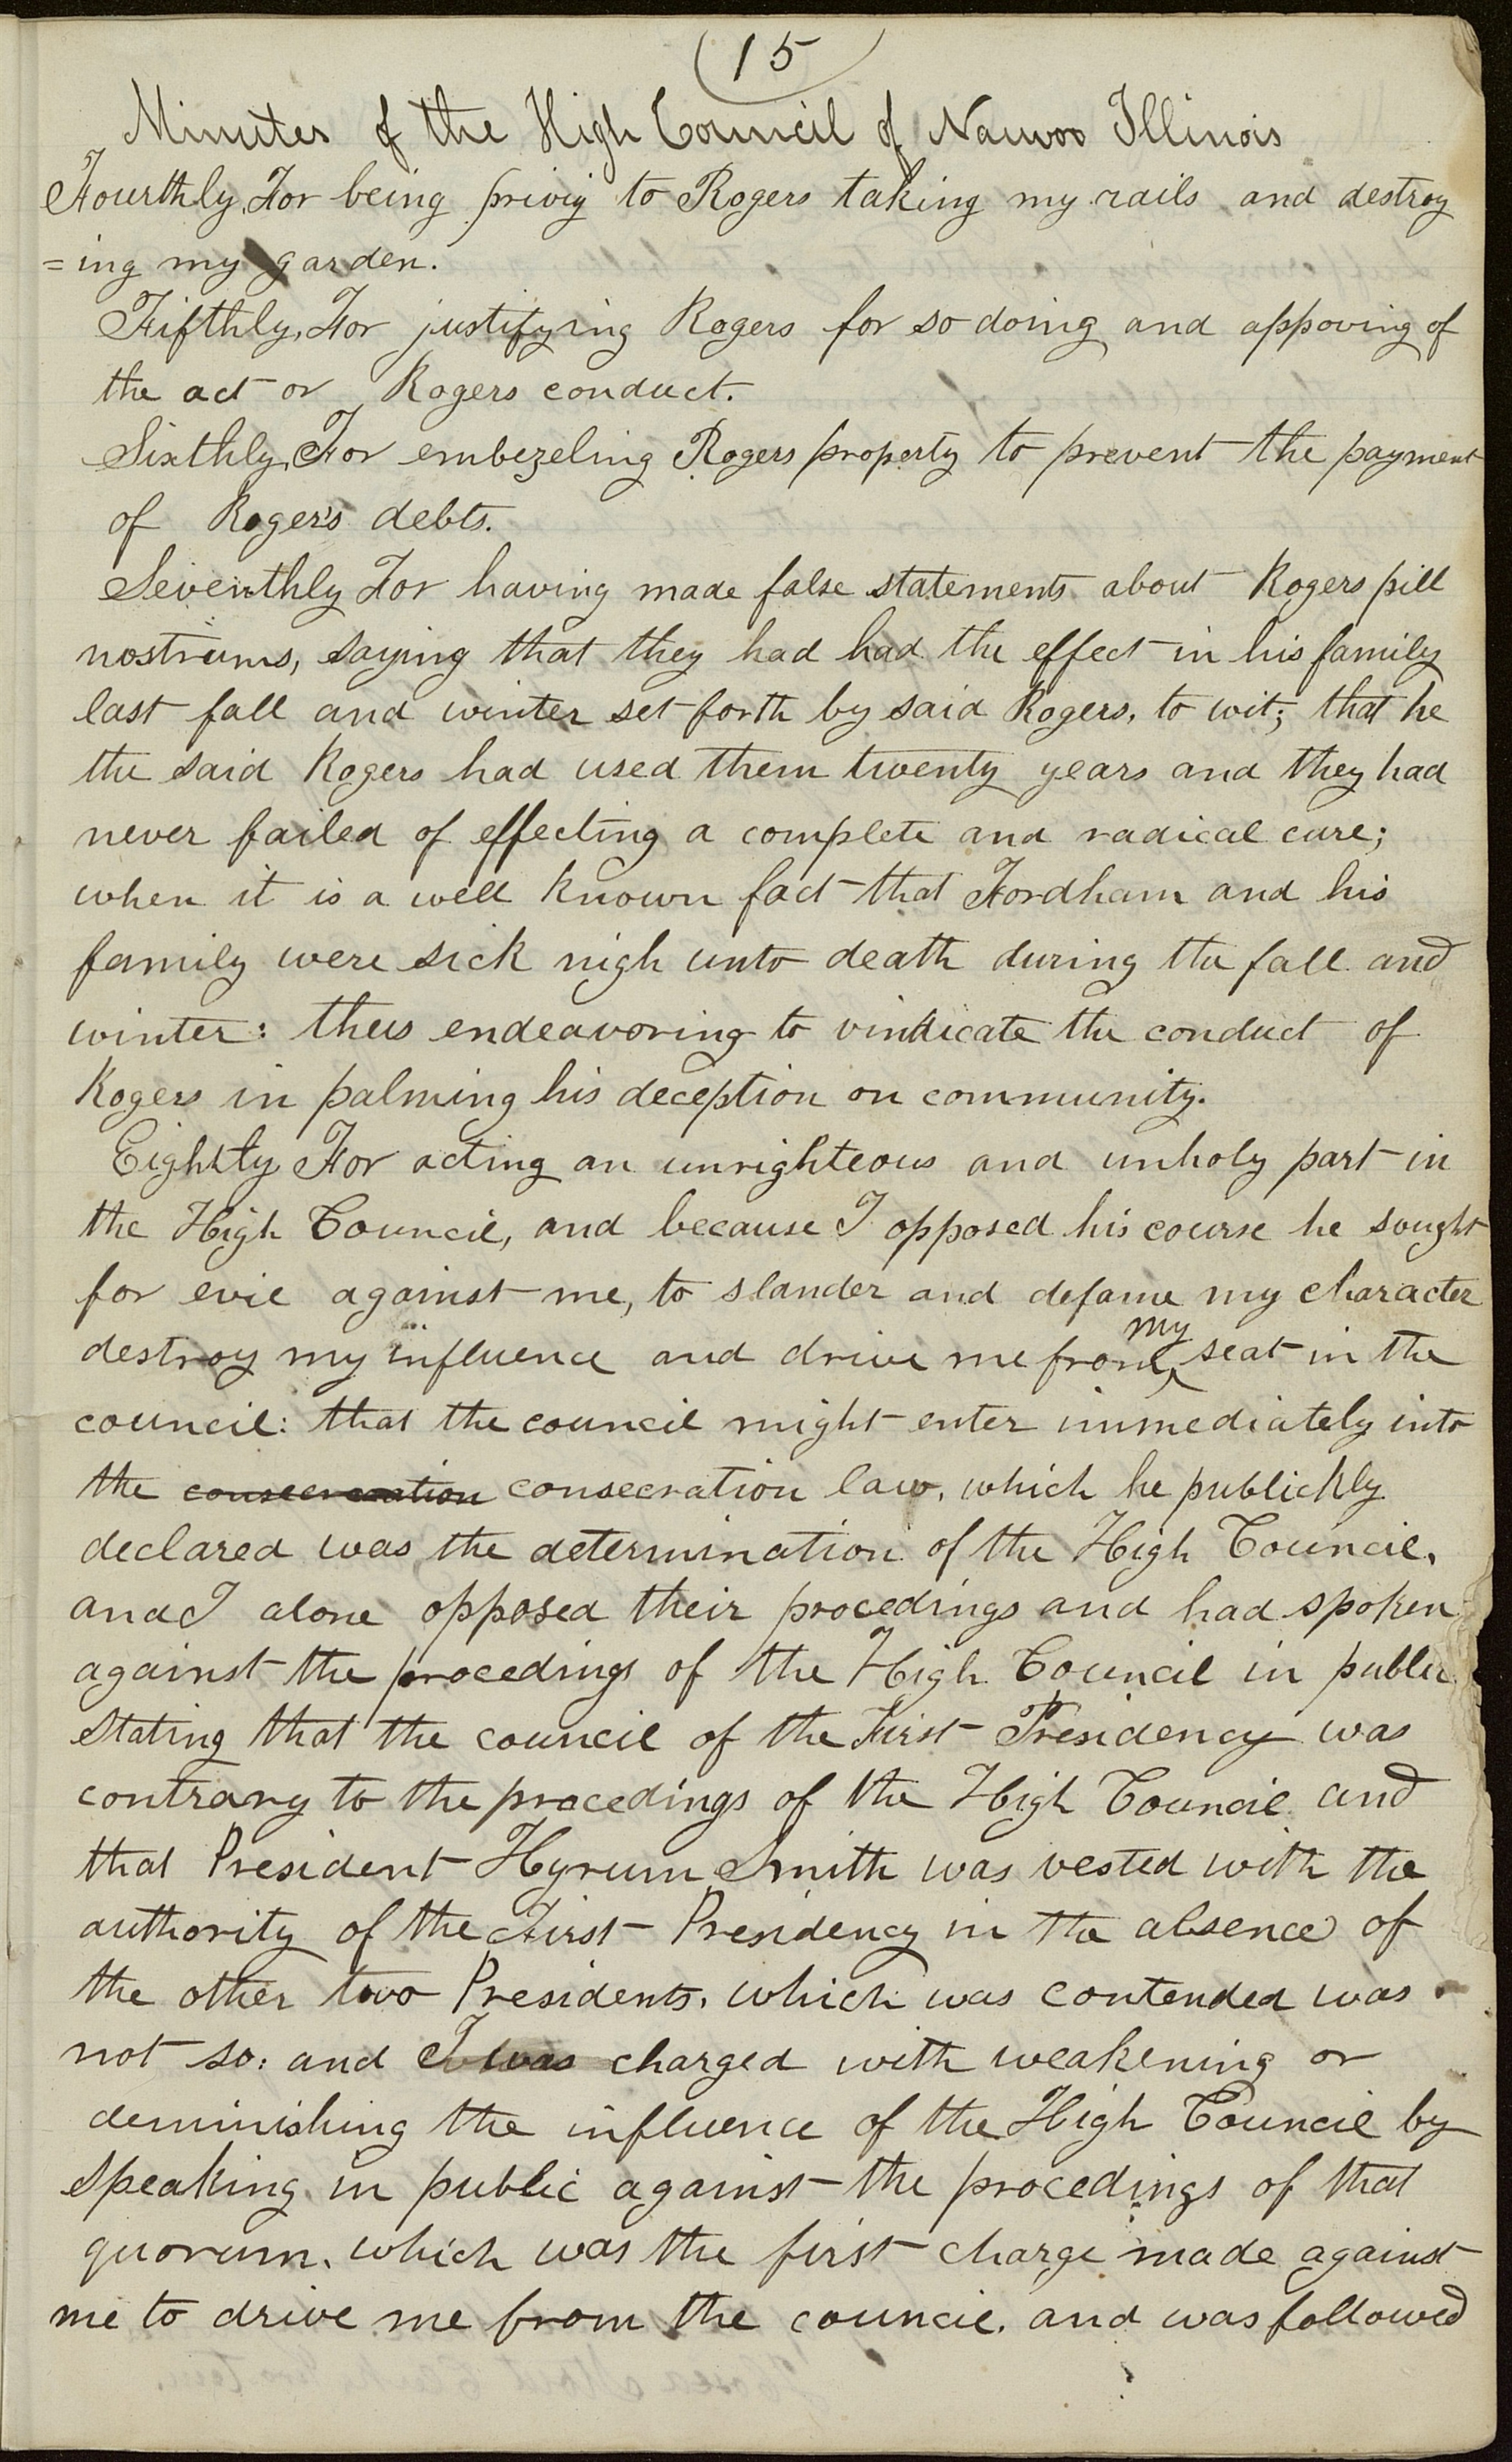 15
Minutes of the High Council of Nauvoo Illinois
Fourthly, For being priviy to Rogers taking my rails and destroy
=ing my garden.
Fifthly, For justifying Rogers for so doing and appoving of
the act or Rogers conduct.
Sixthly, For embezeling Rogers property to prevent the payment
of Roger's debts.
Seventhly For having made false statements about Rogers pill
nostrums, saying that they had had the effect in his family
last fall and winter set forth by said Rogers, to wit; that he
the said Rogers had used them twenty years and they had
never failed of effecting a complete and radical cure;
when it is a well known fact that Fordham and his
family were sick nigh unto death during the fall and
winter: thus endeavoring to vindicate the conduct of
Rogers in palming his deception on community.
Eightly For acting an unrighteous and unholy part in
the High Council, and because I opposed his course he sought
for evil against me, to slander and defame my character
destroy my influence and drive me from my seat in the
council: that the council might enter immediately into
the consecreation consecration law, which he publickly
declared was the determination of the High Council,
and I alone opposed their procedings and had spoken
against the procedings of the High Council in public
stating that the council of the First Presidency was
contrary to the procedings of the High Council and
that President Hyrum Smith was vested with the
authority of the First Presidency in the absence of
the other two Presidents, which was contended was
not so: and I was charged with weakening or
deminishing the influence of the High Council by
speaking in public against the procedings of that
quorum, which was the first charge made against
me to drive me from the council, and was followed